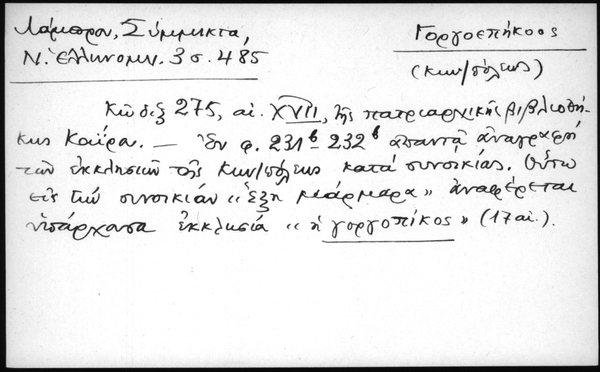 Λάμπρου, Σύμμικτα,
Ν. Ἑλληνομν. 3 σ. 485
Γοργοεπήκοος
(Κων/πόλεως)
Κῶδιξ 275, αἰ. XVII, τῆς πατριαρχικῆς βιβλιοθή-
κης Καΐρου. — Ἐν φ. 231β-232β ἀπαντᾷ ἀναγραφὴ
τῶν ἐκκλησιῶν τῆς Κων/πόλεως κατὰ συνοικίας. Οὕτω
εἰς τὴν συνοικίαν «Ἑξῆ μάρμαρα» ἀναφέρεται
ὑπάρχουσα ἐκκλησία «ἡ γοργοπίκος» (17 αἰ.).